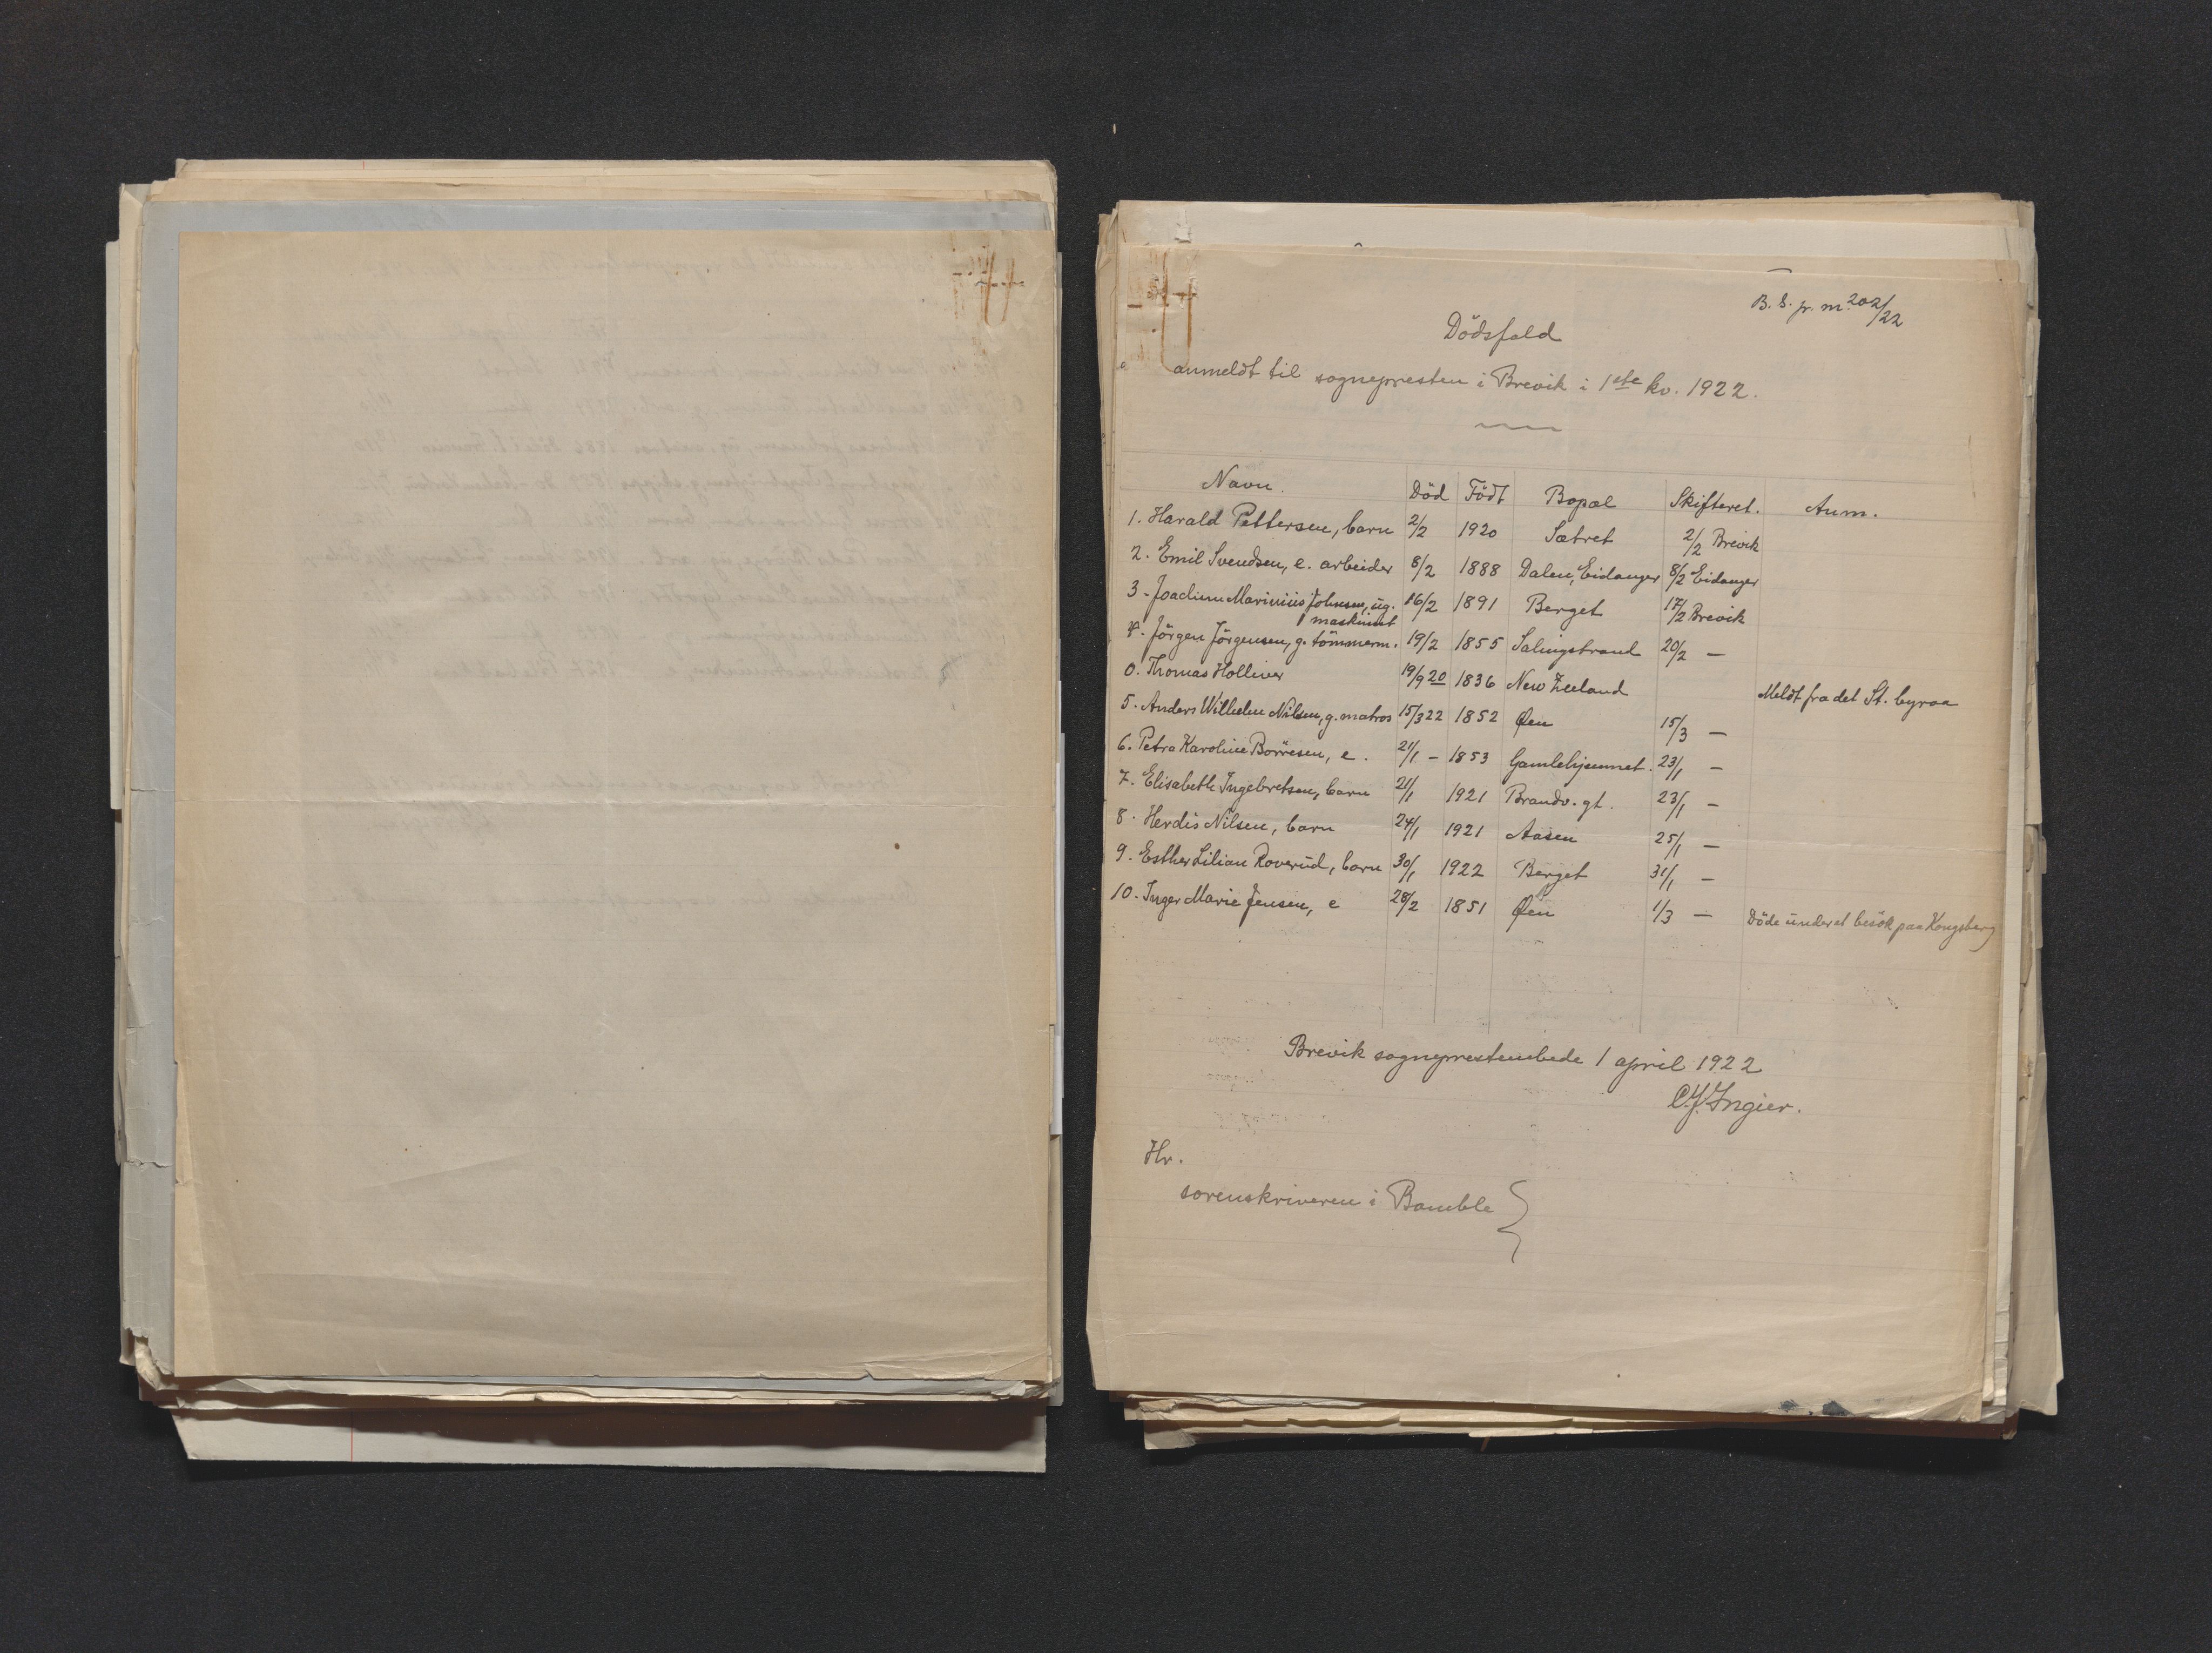 B. S. jr. nr 202/22
Dödsfald
anmeldt til sognepresten i Brevik i 1ste kv. 1922.
Navn. Död Födt Bopæl Skifteret. Anm.
1. Harald Pettersen, barn 2/2 1920 Sætret 2/2 Brevik
2. Emil Svendsen, e. arbeider 8/2 1888 Dalen, Eidanger 8/2 Eidanger
3. Joachim Marinius Johnsen, ug. maskinist 16/2 1891 Berget 17/2 Brevik
4. Jörgen Jörgensen, g. tömmerm. 19/2 1855 Salingstrand 20/2 —
0. Thomas Holliver 19/9 20 1836 New Zeeland Meldt fra det St. byraa
5. Anders Wilhelm Nilsen, g. matros 15/3 22 1852 Øen 15/3 —
6. Petra Karoline Borresen, e. 21/1 - 1853 Gamlehjemmet. 23/1 —
7. Elisabeth Ingebretsen, barn 21/1 1921 Brandv. gt. 23/1 —
8. Herdis Nilsen, barn 24/1 1921 Aasen 25/1 —
9. Esther Lilian Roverud, barn 30/1 1922 Berget 31/1 —
10. Inger Marie Jensen, e 28/2 1851 Øen 1/3 — Döde under et besök paa Kongsberg
Brevik sogneprestembede 1 april 1922
C. J. Ingier.
Hr.
sorenskriveren i Bamble